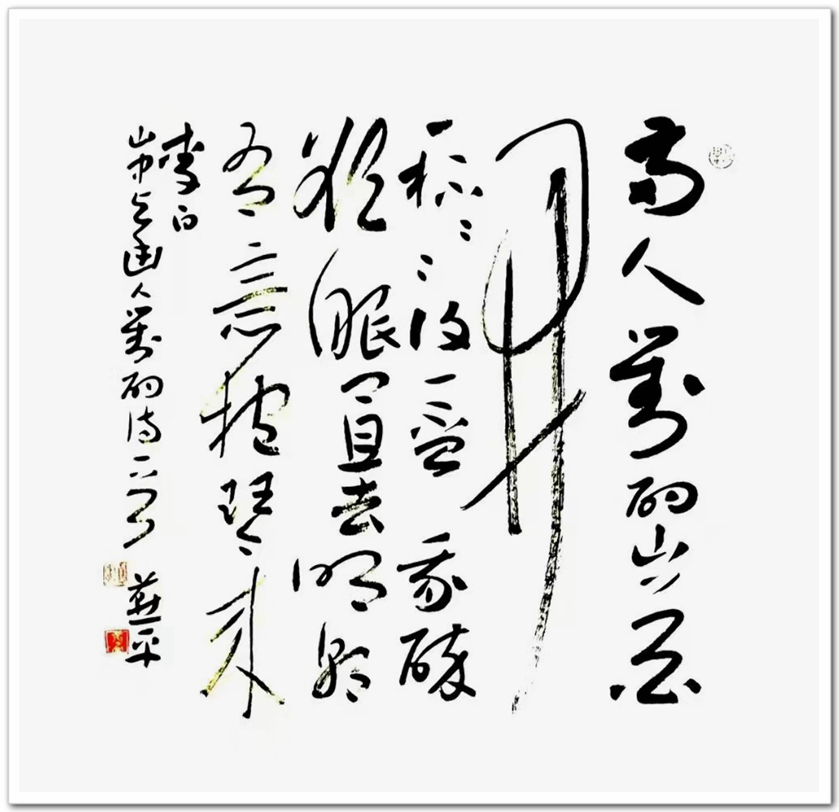 两人對酌山花
開
一杯〻〻復一盃我醉
欲眠卿且去明朝
有意抱琴来
李白
山中与幽人對酌诗一首 燕平